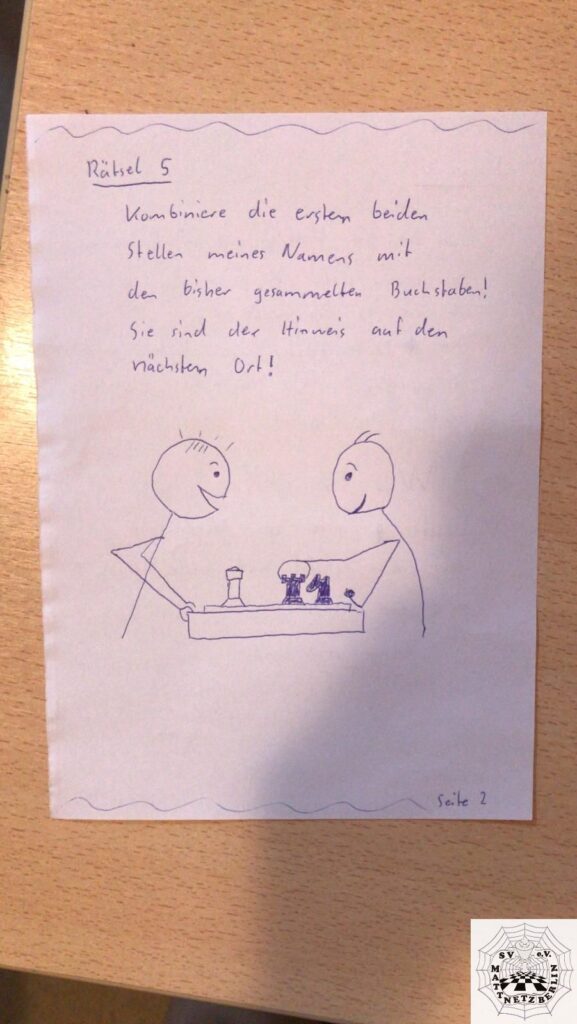 Rätsel 5
Kombiniere die ersten beiden
Stellen meines Namens mit
den bisher gesammelten Buchstaben!
Sie sind der Hinweis auf den
nächsten Ort!
Seite 2
SV e.V.
MATTNETZBERLIN